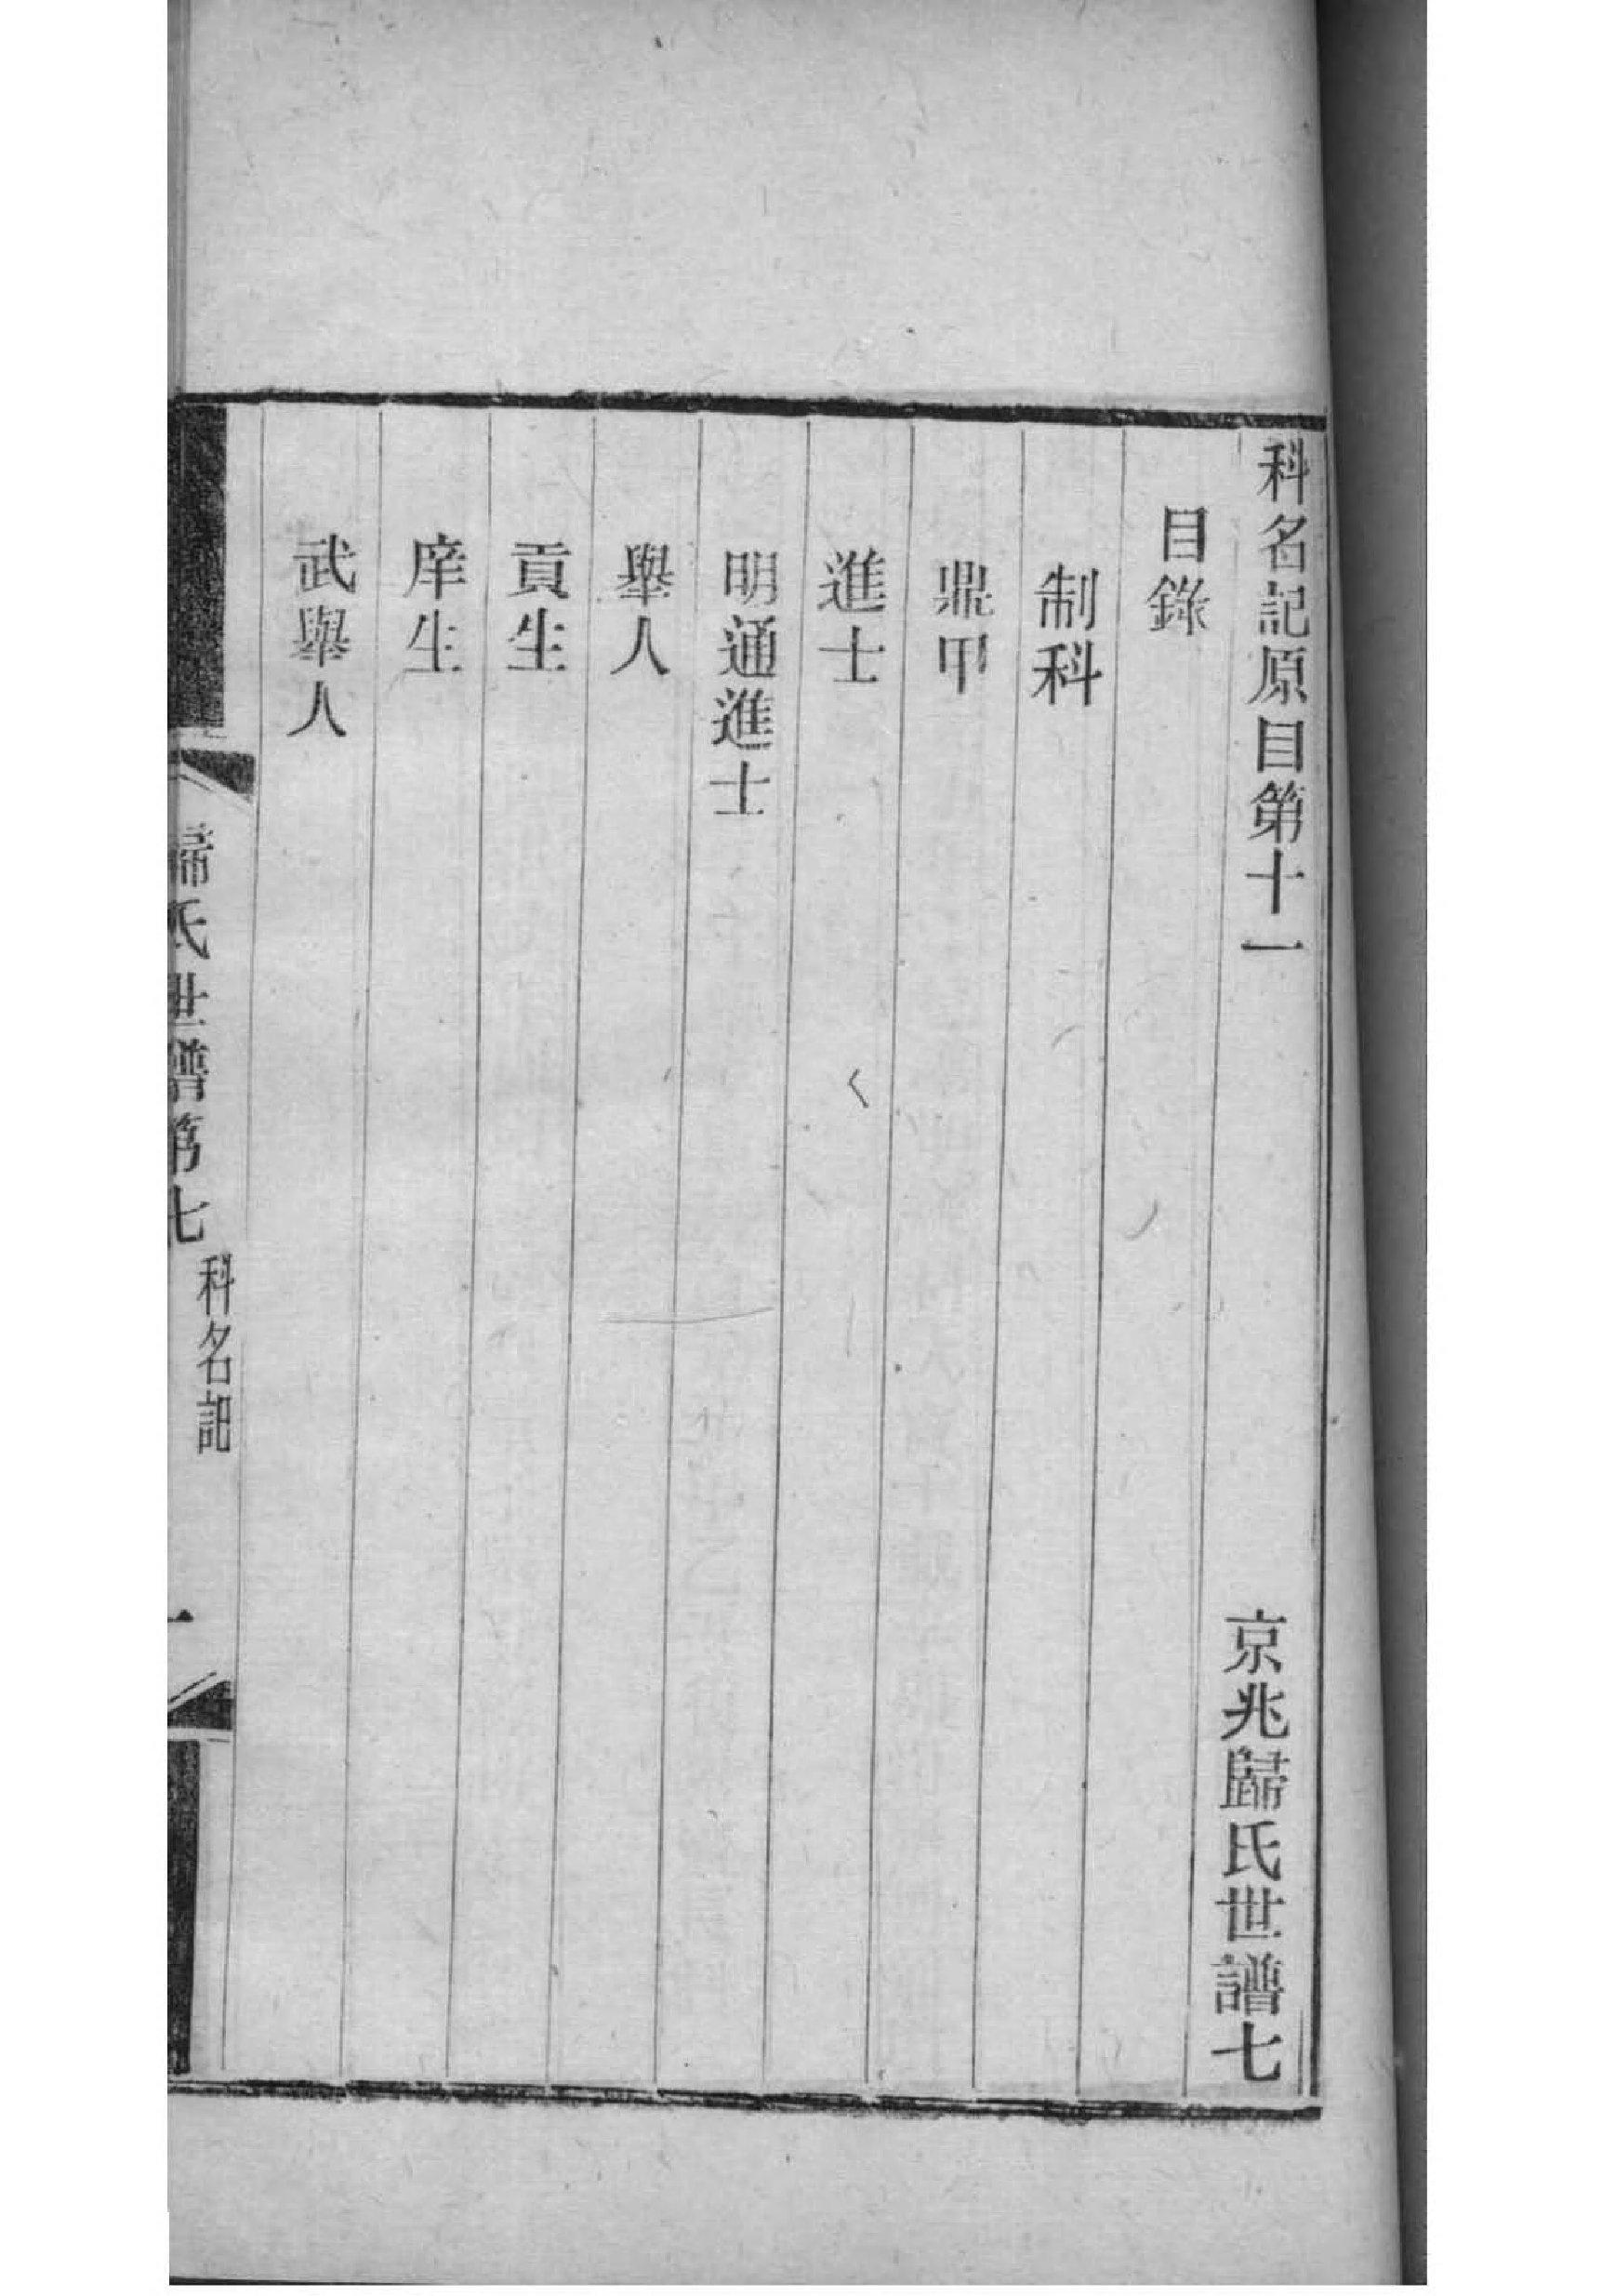 科名記原目第十一　京兆歸氏世譜七
目錄
制科
鼎甲
進士
明通進士
舉人
貢生
庠生
武舉人
歸氏世譜第七　科名記　一